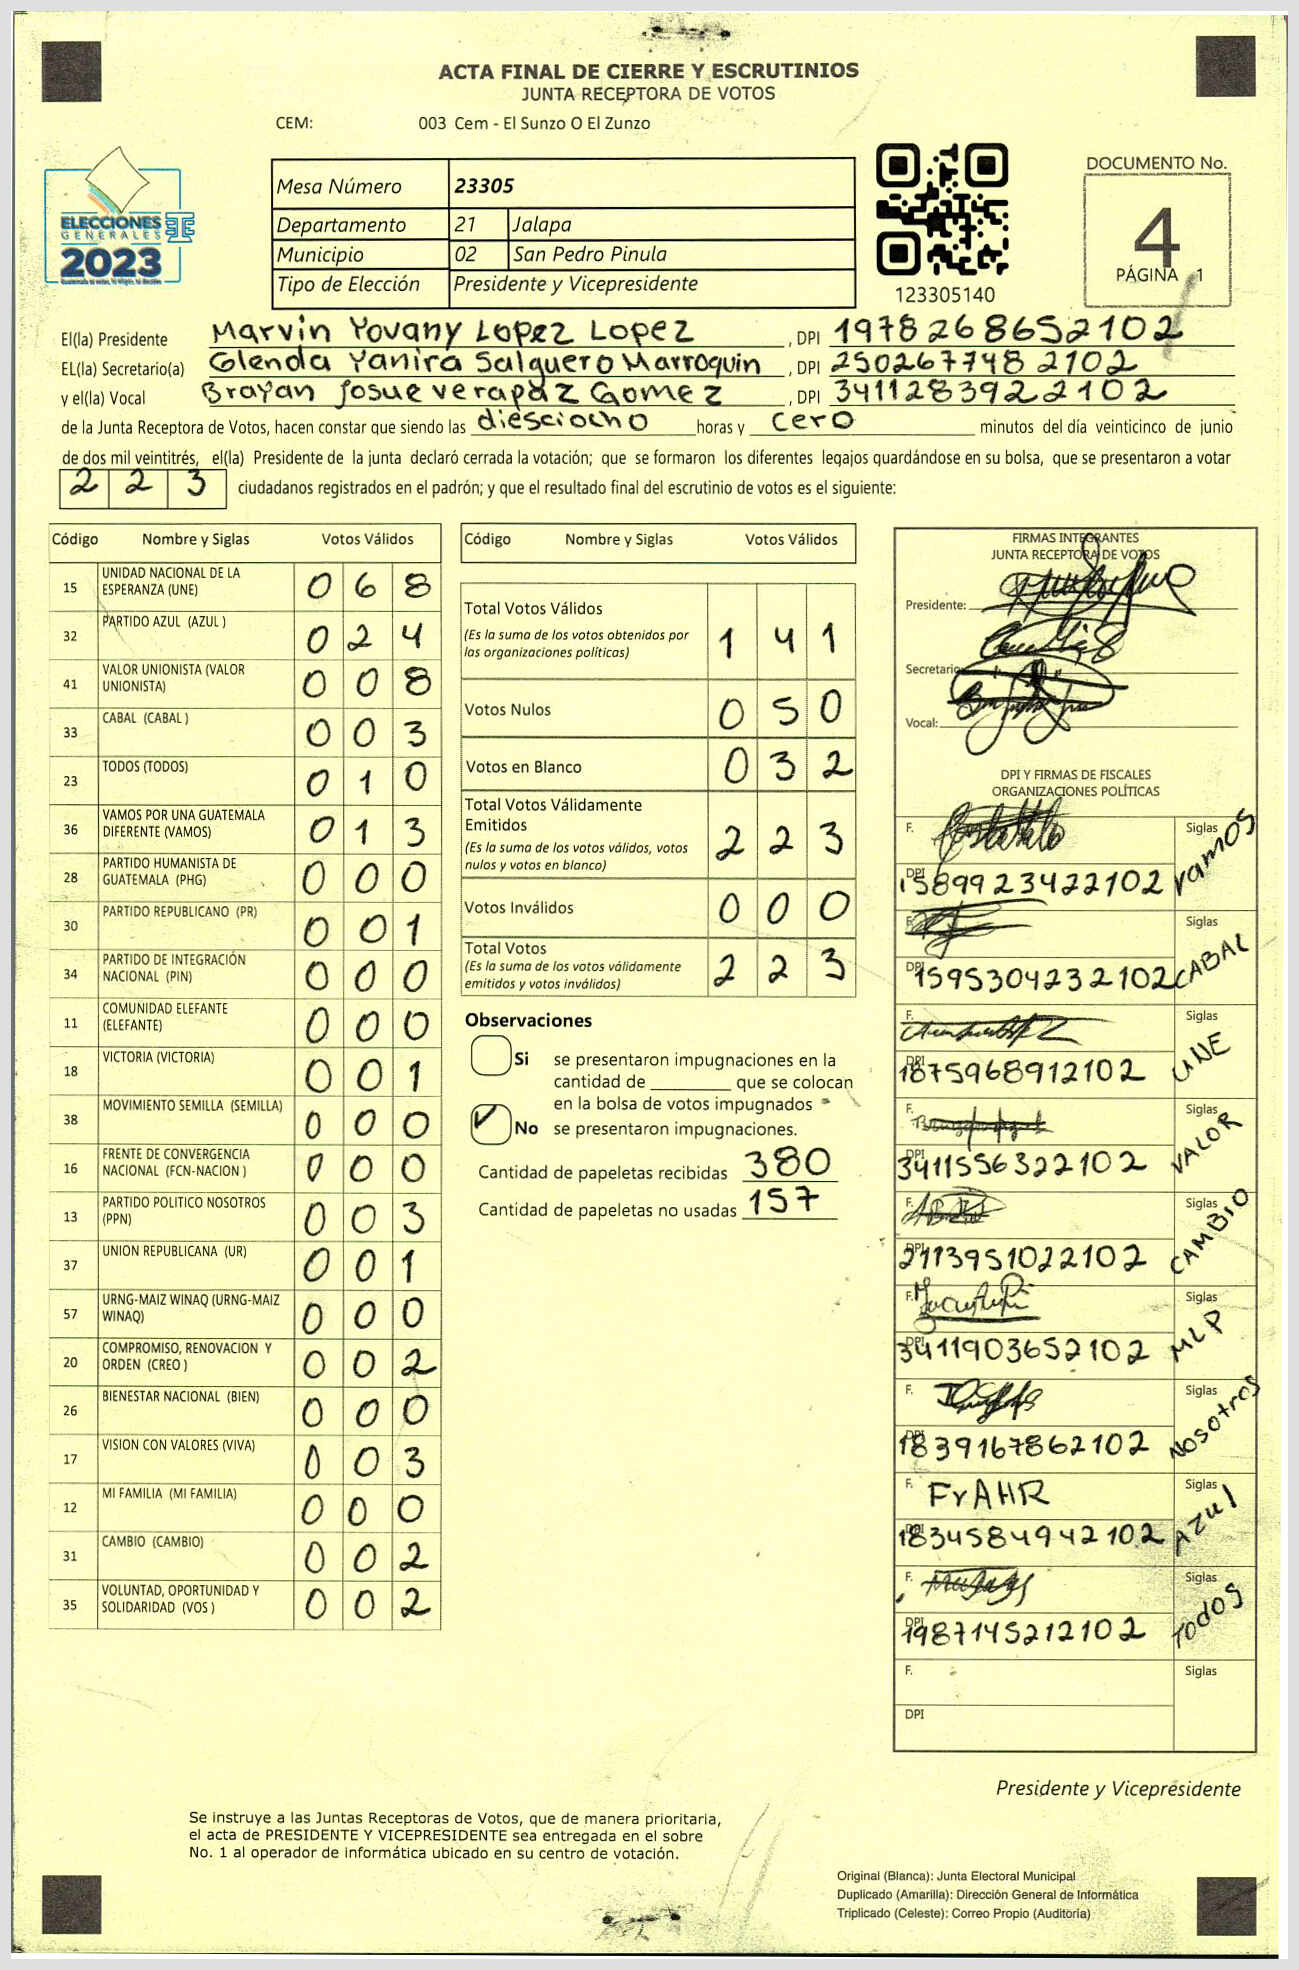 ACTA FINAL DE CIERRE Y ESCRUTINIOS
JUNTA RECEPTORA DE VOTOS
CEM: 003 Cem - El Sunzo O El Zunzo
ELECCIONES
GENERALES
2023
Mesa Número 23305
Departamento 21 Jalapa
Municipio 02 San Pedro Pinula
Tipo de Elección Presidente y Vicepresidente
123305140
DOCUMENTO No.
4
PÁGINA 1
El(la) Presidente Marvin Yovany Lopez Lopez , DPI 1978268652102
EL(la) Secretario(a) Glenda Yanira Salguero Marroquin , DPI 250267748 2102
y el(la) Vocal Brayan Josue verapaz Gomez , DPI 3411283922102
de la Junta Receptora de Votos, hacen constar que siendo las diesciocho horas y cero minutos del día veinticinco de junio
de dos mil veintitrés, el(la) Presidente de la junta declaró cerrada la votación; que se formaron los diferentes legajos guardándose en su bolsa, que se presentaron a votar
2 2 3 ciudadanos registrados en el padrón; y que el resultado final del escrutinio de votos es el siguiente:
Código Nombre y Siglas Votos Válidos
15 UNIDAD NACIONAL DE LA ESPERANZA (UNE) 0 6 8
32 PARTIDO AZUL (AZUL ) 0 2 4
41 VALOR UNIONISTA (VALOR UNIONISTA) 0 0 8
33 CABAL (CABAL ) 0 0 3
23 TODOS (TODOS) 0 1 0
36 VAMOS POR UNA GUATEMALA DIFERENTE (VAMOS) 0 1 3
28 PARTIDO HUMANISTA DE GUATEMALA (PHG) 0 0 0
30 PARTIDO REPUBLICANO (PR) 0 0 1
34 PARTIDO DE INTEGRACIÓN NACIONAL (PIN) 0 0 0
11 COMUNIDAD ELEFANTE (ELEFANTE) 0 0 0
18 VICTORIA (VICTORIA) 0 0 1
38 MOVIMIENTO SEMILLA (SEMILLA) 0 0 0
16 FRENTE DE CONVERGENCIA NACIONAL (FCN-NACION ) 0 0 0
13 PARTIDO POLITICO NOSOTROS (PPN) 0 0 3
37 UNION REPUBLICANA (UR) 0 0 1
57 URNG-MAIZ WINAQ (URNG-MAIZ WINAQ) 0 0 0
20 COMPROMISO, RENOVACION Y ORDEN (CREO ) 0 0 2
26 BIENESTAR NACIONAL (BIEN) 0 0 0
17 VISION CON VALORES (VIVA) 0 0 3
12 MI FAMILIA (MI FAMILIA) 0 0 0
31 CAMBIO (CAMBIO) 0 0 2
35 VOLUNTAD, OPORTUNIDAD Y SOLIDARIDAD (VOS ) 0 0 2
Código Nombre y Siglas Votos Válidos
Total Votos Válidos 1 4 1
(Es la suma de los votos obtenidos por
las organizaciones políticas)
Votos Nulos 0 5 0
Votos en Blanco 0 3 2
Total Votos Válidamente
Emitidos 2 2 3
(Es la suma de los votos válidos, votos
nulos y votos en blanco)
Votos Inválidos 0 0 0
Total Votos 2 2 3
(Es la suma de los votos válidamente
emitidos y votos inválidos)
Observaciones
Si se presentaron impugnaciones en la
cantidad de que se colocan
en la bolsa de votos impugnados
No se presentaron impugnaciones.
Cantidad de papeletas recibidas 380
Cantidad de papeletas no usadas 157
FIRMAS INTEGRANTES
JUNTA RECEPTORA DE VOTOS
Presidente:
Secretario:
Vocal:
DPI Y FIRMAS DE FISCALES
ORGANIZACIONES POLÍTICAS
F. Siglas vamos
DPI 1589923422102
F. Siglas CABAL
DPI 1595304232102
F. Siglas UNE
DPI 1875968912102
F. Siglas VALOR
DPI 3411556322102
F. Siglas CAMBIO
DPI 2113951022102
F. Siglas MLP
DPI 3411903652102
F. Siglas Nosotros
DPI 1839167862102
F. FrAHR Siglas Azul
DPI 1834584942102
F. Siglas Todos
DPI 1987145212102
F. Siglas
DPI
Presidente y Vicepresidente
Se instruye a las Juntas Receptoras de Votos, que de manera prioritaria,
el acta de PRESIDENTE Y VICEPRESIDENTE sea entregada en el sobre
No. 1 al operador de informática ubicado en su centro de votación.
Original (Blanca): Junta Electoral Municipal
Duplicado (Amarilla): Dirección General de Informática
Triplicado (Celeste): Correo Propio (Auditoría)